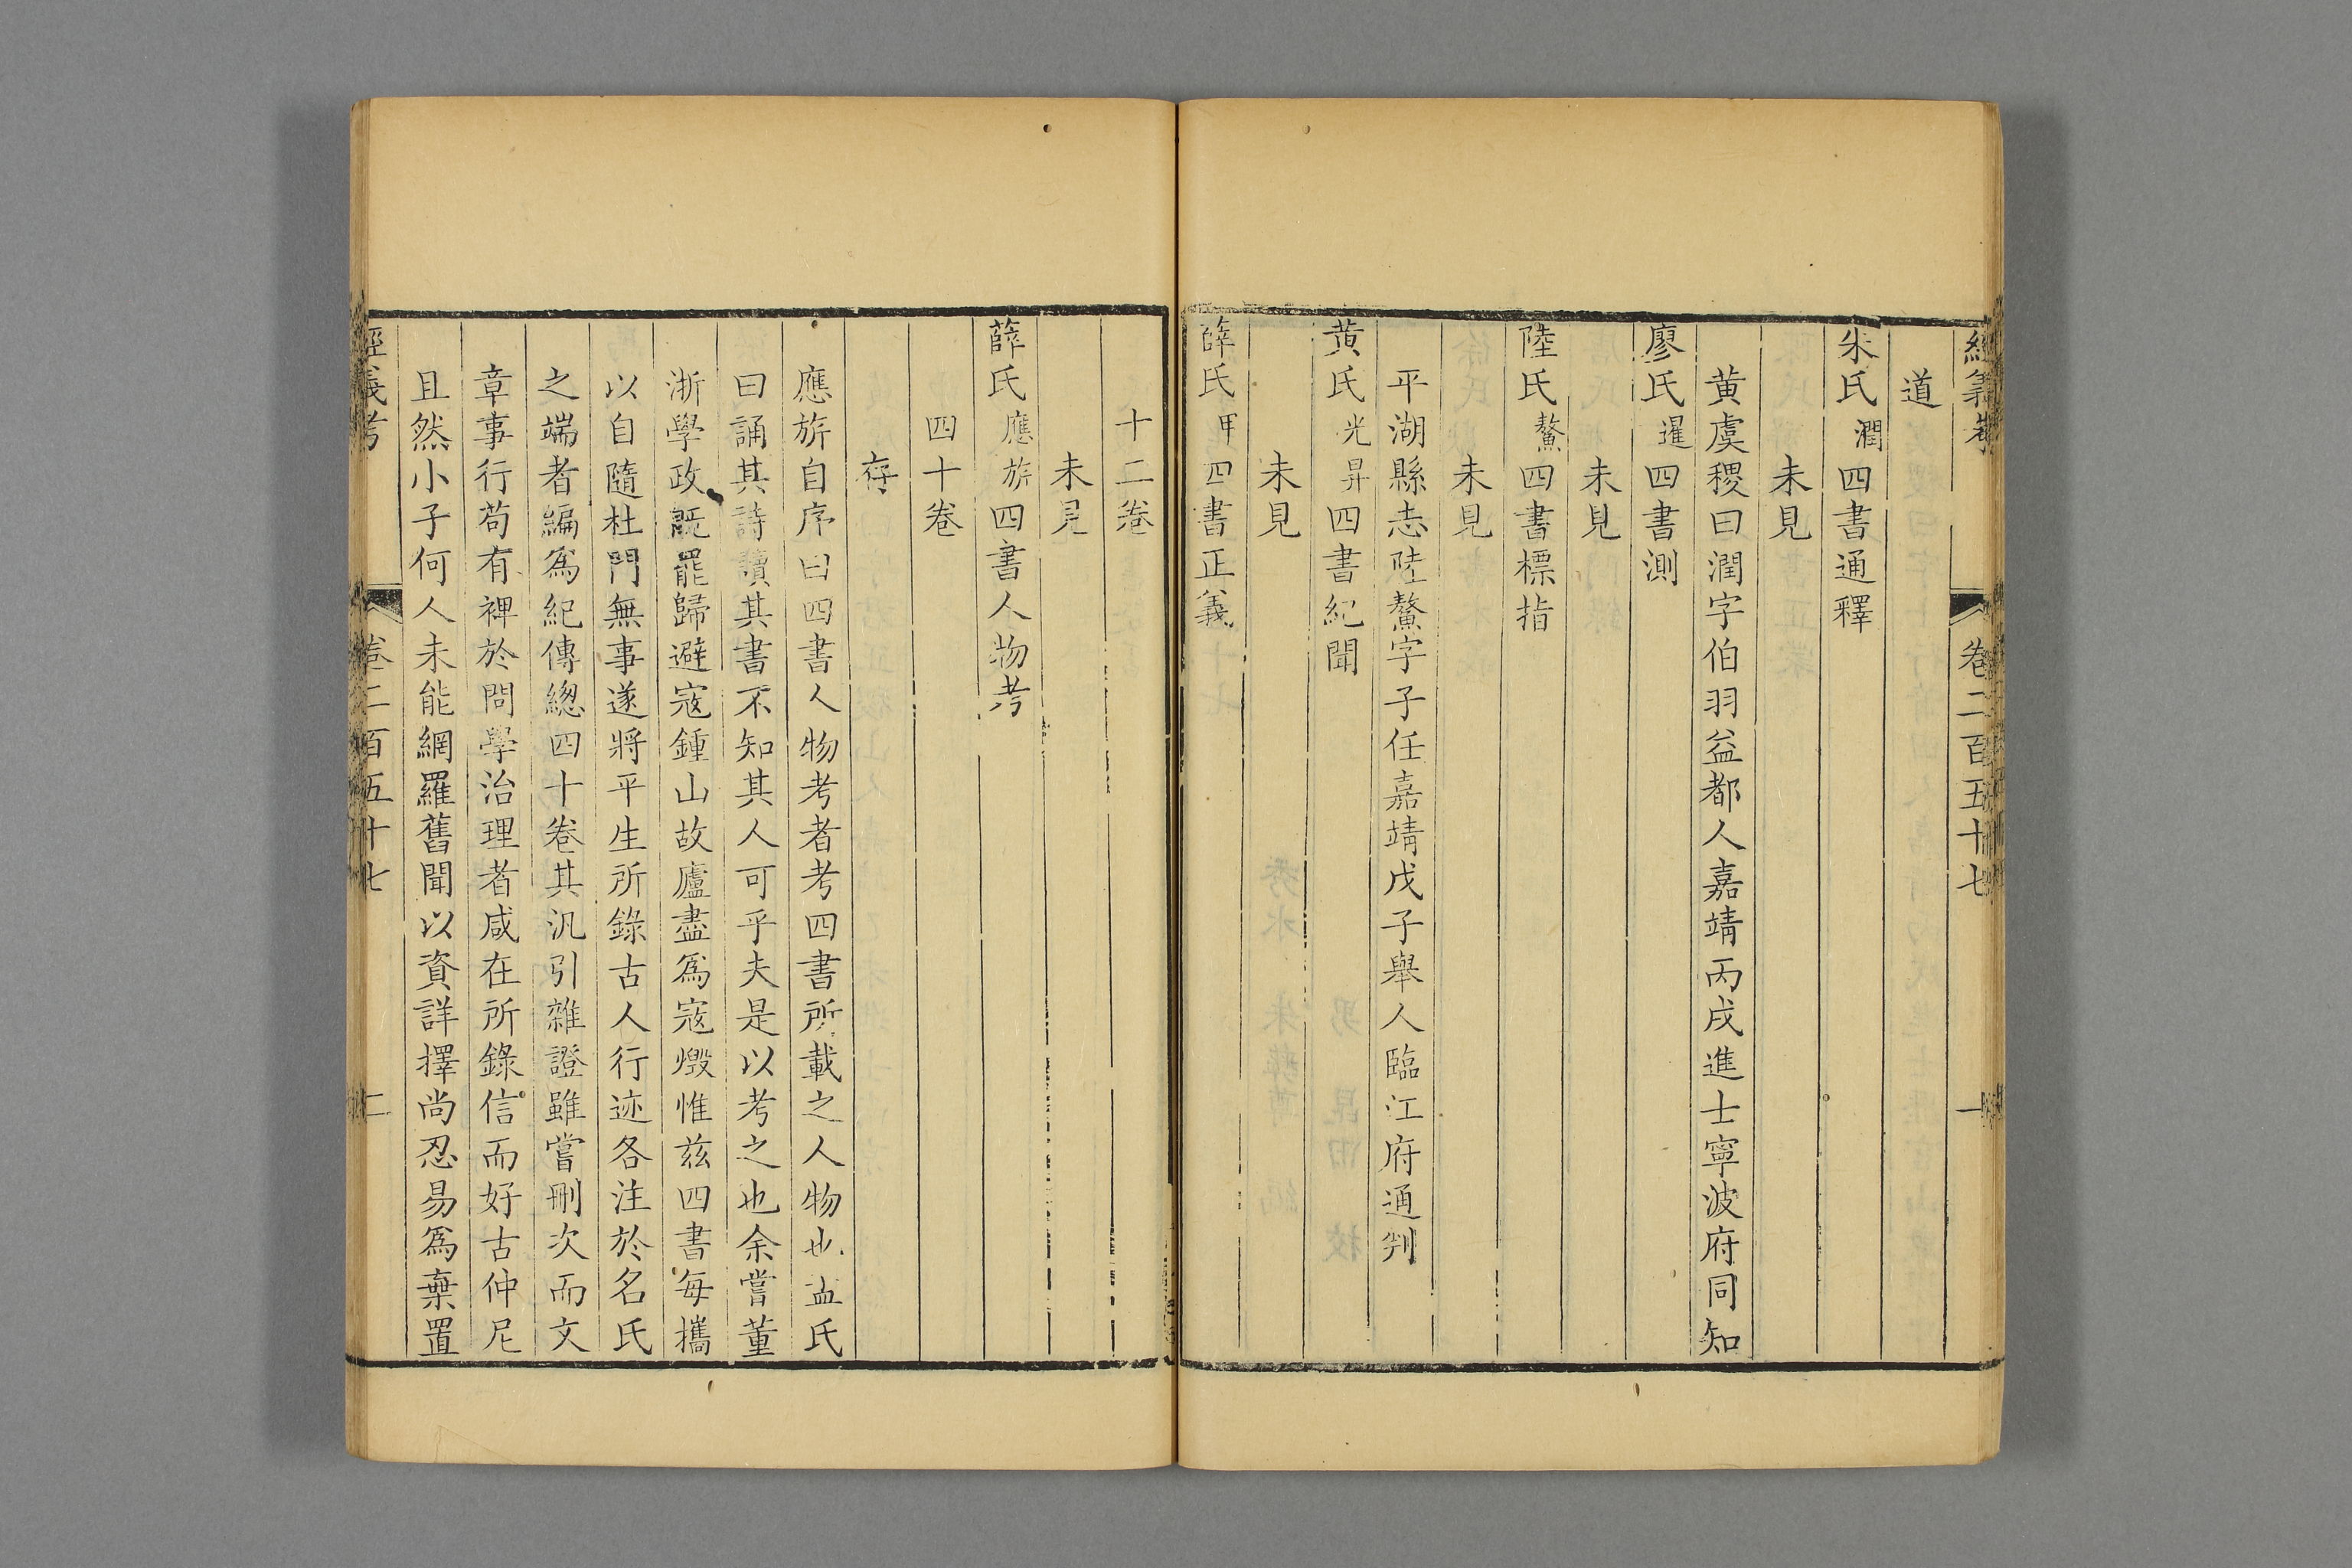 經義考 卷二百五十七 一
道
朱氏潤四書通釋
未見
黃虞稷曰潤字伯羽益都人嘉靖丙戌進士寧波府同知
廖氏暹四書測
未見
陸氏鰲四書標指
未見
平湖縣志陸鰲字子任嘉靖戊子舉人臨江府通判
黃氏光昇四書紀聞
未見
薛氏甲四書正義
十二卷
未見
薛氏應旂四書人物考
四十卷
存
應旂自序曰四書人物考者考四書所載之人物也孟氏
曰誦其詩讀其書不知其人可乎夫是以考之也余嘗董
浙學政既罷歸避寇鍾山故廬盡為寇燬惟茲四書每攜
以自隨杜門無事遂將平生所錄古人行迹各注於名氏
之端者編為紀傳總四十卷其汎引雜證雖嘗刪次而文
章事行苟有裨於問學治理者咸在所錄信而好古仲尼
且然小子何人未能網羅舊聞以資詳擇尚忍易為棄置
經義考 卷二百五十七 二